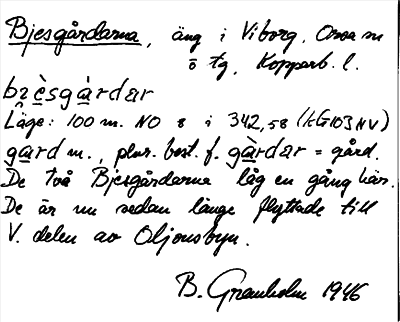 Bjesgårdarna, äng i Viborg, Orsa sn
o tg, Kopparb. l.
bzèsgàrdar
Läge: 100 m. NO 8 i 342,58 (kG103NV)
gard m., plur. best. f. gàrdar = gård.
De två Bjesgårdarna låg en gång här.
De är nu sedan länge flyttade till
V. delen av Oljonsbyn.
B. Granholm 1946